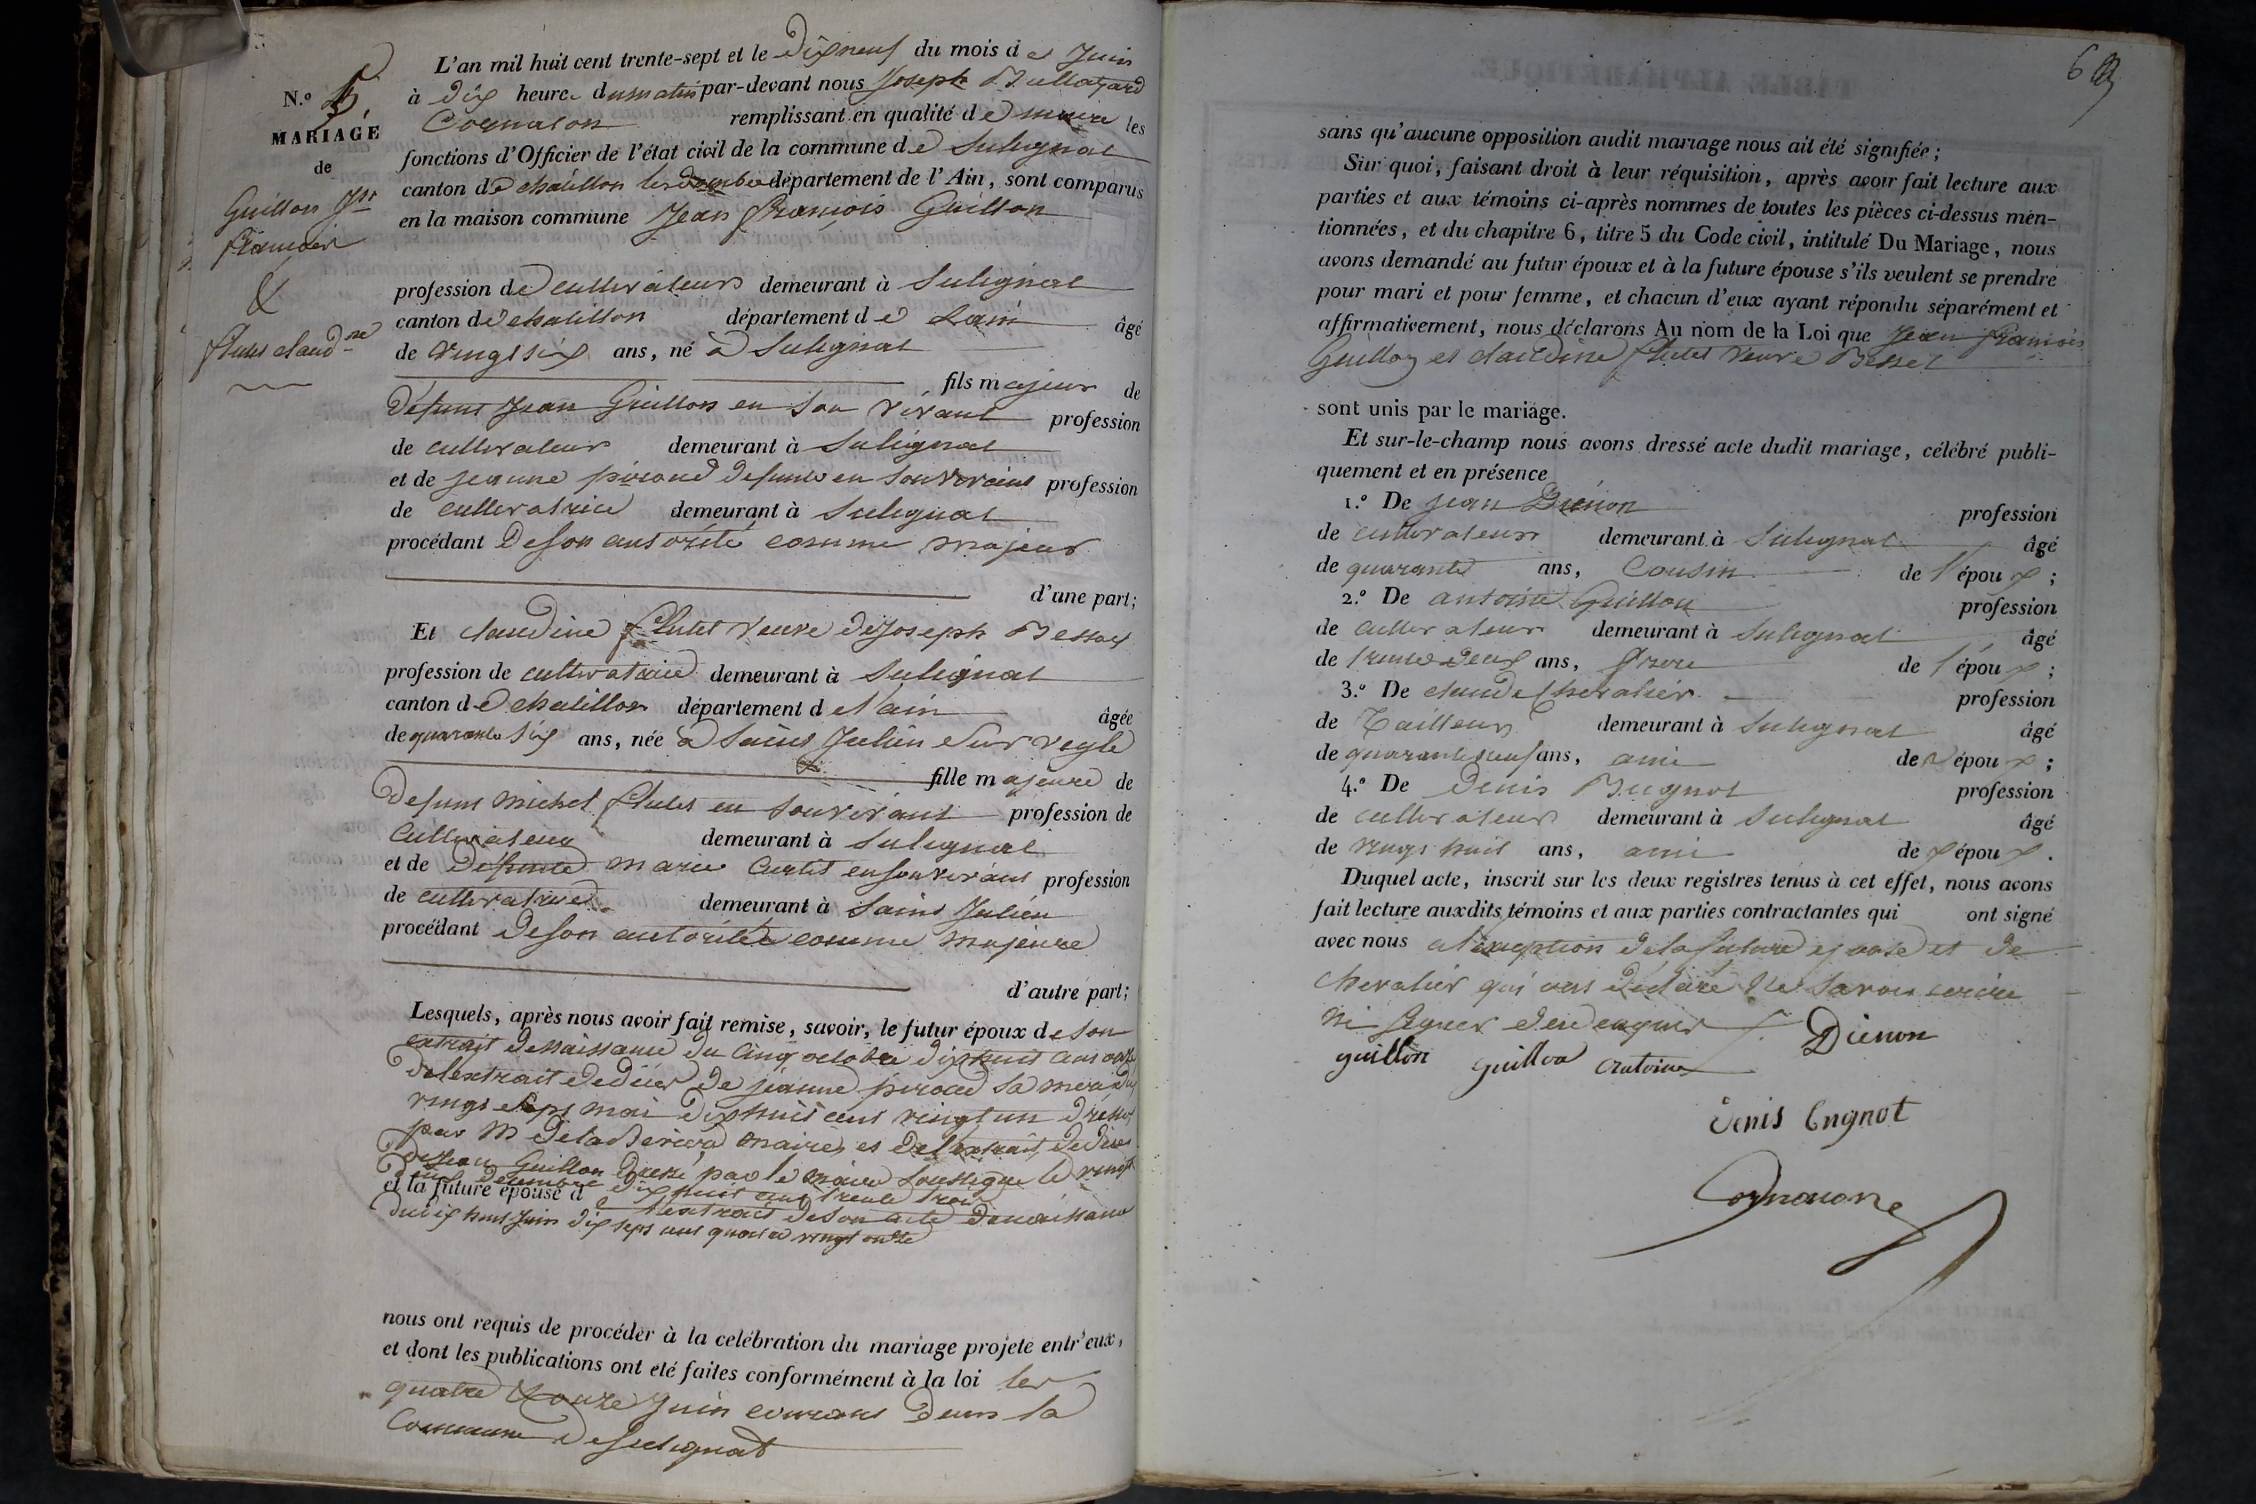 N.º 5.
MARIAGE
de
Guillon Jn
françois
&
flutet claudne
L'an mil huit cent trente-sept et le dixneuf du mois de Juin
à dix heure du matin par-devant nous Joseph
remplissant en qualité de maire les
fonctions d'Officier de l'état civil de la commune de Sulignat
canton de chatillon les dombes département de l'Ain, sont comparus
en la maison commune Jean françois Guillon
profession de cultivateur demeurant à Sulignat
canton de chatillon département de Lain âgé
de vingt six ans, né à Sulignat
fils majeur de
défunt Jean Guillon en son vivant profession
de cultivateur demeurant à Sulignat
et de jeanne piroud defunte en son vivant profession
de cultivatrice demeurant à Sulignat
procédant de son autorité comme majeur
d'une part;
Et claudine flutet veuve de joseph Bessat
profession de cultivatrice demeurant à Sulignat
canton de chatillon département de l'ain âgée
de quarante six ans, née à Saint Julien Sur veyle
fille majeure de
Defunt Michel flutet en son vivant profession de
Cultivateur demeurant à Sulignat
et de Defunte marie Curtet en son vivant profession
de cultivatrice demeurant à Saint Julien
procédant de son autorité comme majeure
d'autre part;
Lesquels, après nous avoir fait remise, savoir, le futur époux de son
extrait de naissance du cinq octobre dix huit cent onze
de l'extrait de décès de jeanne piroud sa mère du
vingt sept mai dix huit cent vingt un dressé
par M maire et de l'extrait de décès
de Jean Guillon dressé par le maire soussigné le vingt
décembre dix huit cent trente trois
et la future épouse de l'extrait de son acte de naissance
du dix huit Juin dix sept cent quatre vingt onze
nous ont requis de procéder à la celébration du mariage projeté entr'eux,
et dont les publications ont été faites conformément à la loi les
quatre & onze Juin courant dans la
Commune de Sulignat
69
sans qu'aucune opposition audit mariage nous ait été signifiée;
Sur quoi, faisant droit à leur réquisition, après avoir fait lecture aux
parties et aux témoins ci-après nommes de toutes les pièces ci-dessus men-
tionnées, et du chapitre 6, titre 5 du Code civil, intitulé Du Mariage, nous
avons demandé au futur époux et à la future épouse s'ils veulent se prendre
pour mari et pour femme, et chacun d'eux ayant répondu séparément et
affirmativement, nous déclarons Au nom de la Loi que Jean françois
Guillon et claudine flutet veuve Besset
sont unis par le mariage.
Et sur-le-champ nous avons dressé acte dudit mariage, célébré publi-
quement et en présence
1.º De jean Dienon profession
de cultivateur demeurant à Sulignat âgé
de quarante ans, Cousin de l'époux;
2.º De antoine Guillon profession
de cultivateur demeurant à Sulignat âgé
de trente deux ans, frere de l'époux;
3.º De claude Chevalier profession
de Tailleur demeurant à Sulignat âgé
de quarante neuf ans, ami de l'époux;
4.º De Denis Bugnot profession
de cultivateur demeurant à Sulignat âgé
de vingt huit ans, ami de l'époux.
Duquel acte, inscrit sur les deux registres tenus à cet effet, nous avons
fait lecture auxdits témoins et aux parties contractantes qui ont signé
avec nous à l'exception de la future epouse et de
Chevalier qui ont déclaré ne savoir ecrire
ni signer de ce enquis
Dienon
guillon Guillon antoine
denis bugnot